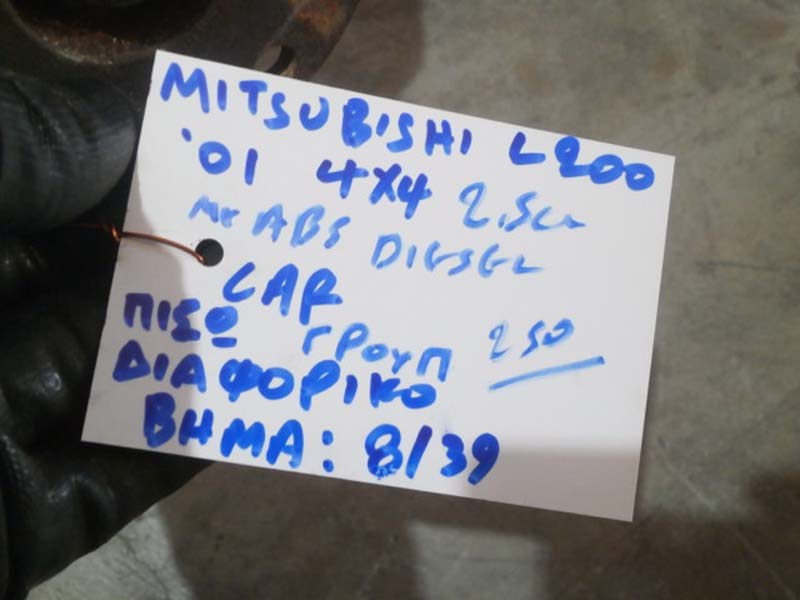 MITSUBISHI L200
'01 4X4 2,5cc
ΜΕ ABS DIESEL
CAR
ΠΙΣΩ ΓΡΟΥΠ 250
ΔΙΑΦΟΡΙΚΟ
ΒΗΜΑ: 8/39